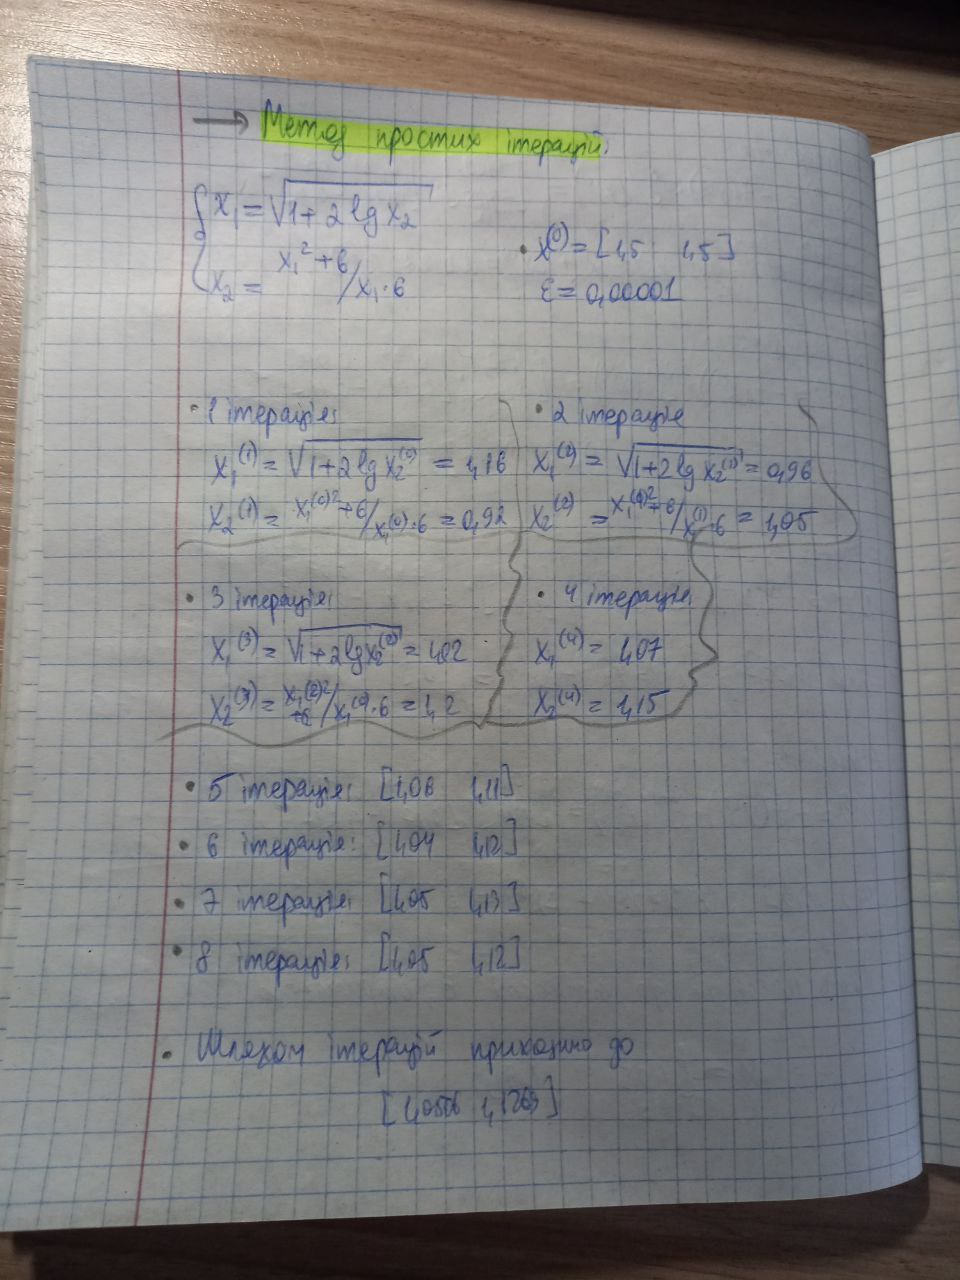 → Метод простих ітерацій.
x₁ = √1 + 2 lg x₂
x₂ = x₁² + 6 / x₁ · 6
• x⁽⁰⁾ = [1,5 1,5]
ε = 0,00001
• 1 ітерація:
x₁⁽¹⁾ = √1 + 2 lg x₂⁽⁰⁾ = 1,16
x₂⁽¹⁾ = x₁⁽⁰⁾² + 6 / x₁⁽⁰⁾ · 6 = 0,92
• 2 ітерація
x₁⁽²⁾ = √1 + 2 lg x₂⁽¹⁾ = 0,96
x₂⁽²⁾ = x₁⁽¹⁾² + 6 / x₁⁽¹⁾ · 6 = 1,05
• 3 ітерація:
x₁⁽³⁾ = √1 + 2 lg x₂⁽²⁾ = 1,02
x₂⁽³⁾ = x₁⁽²⁾² + 6 / x₁⁽²⁾ · 6 = 1,2
• 4 ітерація
x₁⁽⁴⁾ = 1,07
x₂⁽⁴⁾ = 1,15
• 5 ітерація: [1,06 1,11]
• 6 ітерація: [1,04 1,12]
• 7 ітерація: [1,05 1,13]
• 8 ітерація: [1,05 1,12]
• Шляхом ітерацій приходимо до